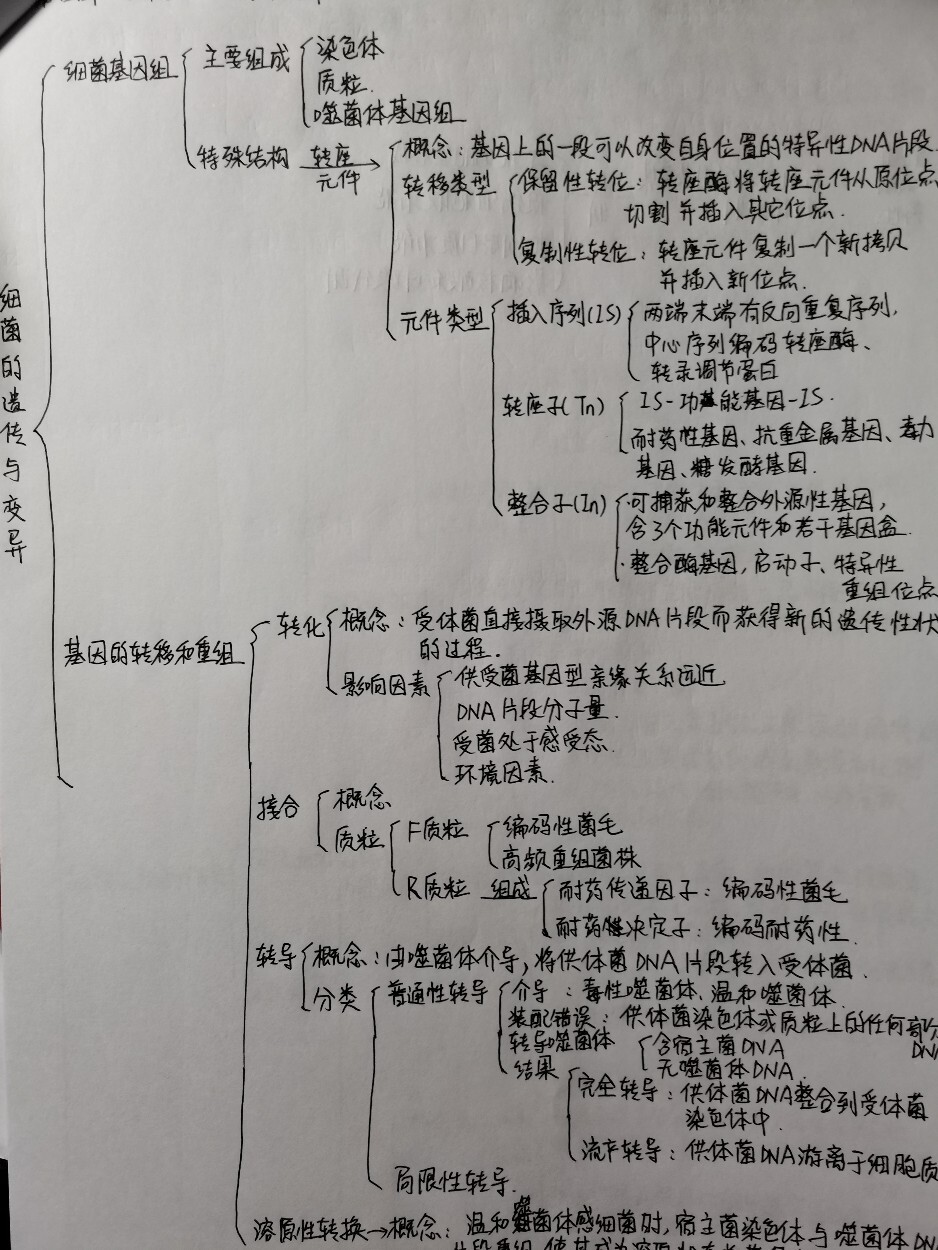 细菌的遗传与变异
细菌基因组
主要组成
染色体
质粒.
噬菌体基因组
特殊结构 转座元件
概念：基因上的一段可以改变自身位置的特异性DNA片段.
转移类型
保留性转位：转座酶将转座元件从原位点
切割并插入其它位点.
复制性转位：转座元件复制一个新拷贝
并插入新位点.
元件类型
插入序列(IS)
两端末端有反向重复序列,
中心序列编码转座酶、
转录调节蛋白
转座子(Tn)
IS-功能基因-IS.
耐药性基因、抗重金属基因、毒力
基因、糖发酵基因.
整合子(In)
·可捕获和整合外源性基因,
含3个功能元件和若干基因盒.
·整合酶基因, 启动子、特异性
重组位点
基因的转移和重组
转化
概念：受体菌直接摄取外源DNA片段而获得新的遗传性状
的过程.
影响因素
供受菌基因型亲缘关系远近
DNA片段分子量.
受菌处于感受态.
环境因素.
接合
概念
质粒
F质粒
编码性菌毛
高频重组菌株
R质粒 组成
耐药传递因子：编码性菌毛
耐药决定子：编码耐药性.
转导
概念：由噬菌体介导, 将供体菌DNA片段转入受体菌.
分类
普通性转导
介导：毒性噬菌体、温和噬菌体.
装配错误：供体菌染色体或质粒上的任何部分
DNA
转导噬菌体
含宿主菌DNA
无噬菌体DNA.
结果
完全转导：供体菌DNA整合到受体菌
染色体中.
流产转导：供体菌DNA游离于细胞质
局限性转导.
溶原性转换→概念：温和噬菌体感细菌时, 宿主菌染色体与噬菌体DN